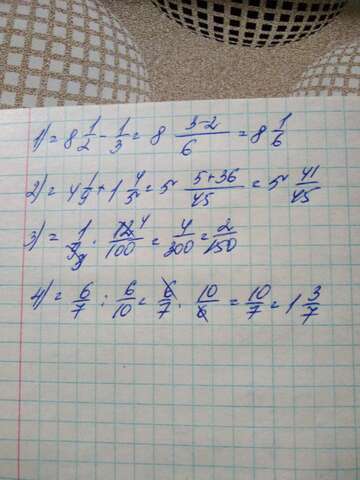 1) = 8 1/2 - 1/3 = 8 (3-2)/6 = 8 1/6
2) = 4 1/9 + 1 4/5 = 5 (5+36)/45 = 5 41/45
3) = 1/3 · 12 4/100 = 4/300 = 2/150
4) = 6/7 : 6/10 = 6/7 · 10/6 = 10/7 = 1 3/7